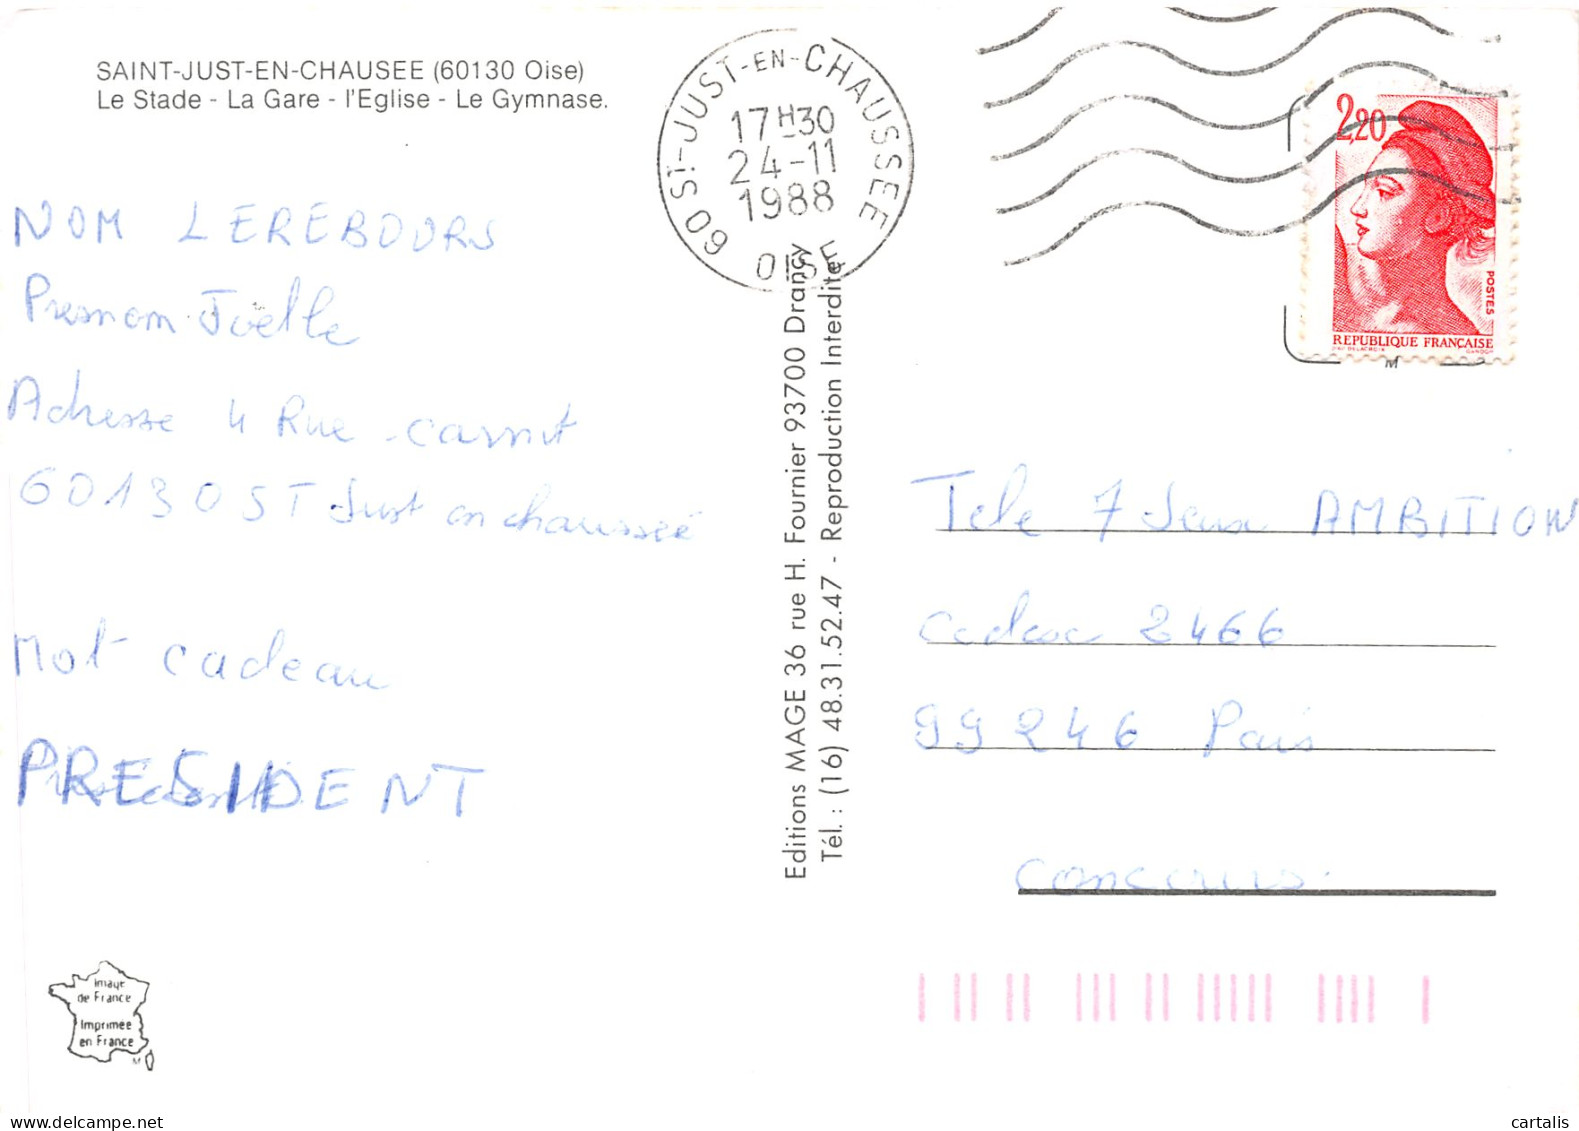 SAINT-JUST-EN-CHAUSEE (60130 Oise)
Le Stade - La Gare - l'Eglise - Le Gymnase.
60 ST-JUST-EN-CHAUSSEE
17H30
24-11
1988
OISE
2,20
POSTES
REPUBLIQUE FRANÇAISE
GANDON
M
NOM LEREBOURS
Presnom Joelle
Adresse 4 Rue carnot
60130 ST Just en chausseé
Mot cadeau
PRESIDENT
Editions MAGE 36 rue H. Fournier 93700 Drancy
Tél. : (16) 48.31.52.47 - Reproduction Interdite
Tele 7 Jeux AMBITION
Cedex 2466
99246 Pais
Concours
Image
de France
Imprimée
en France
M
cartalis